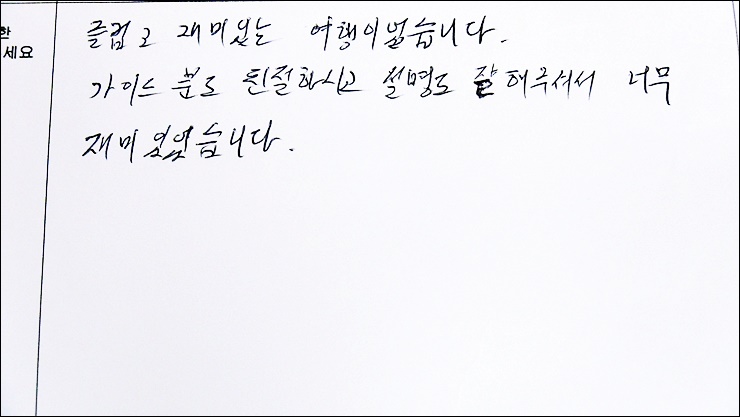 한
세요
즐겁고 재미있는 여행이었습니다.
가이드 분도 친절하시고 설명도 잘 해주셔서 너무
재미있었습니다.